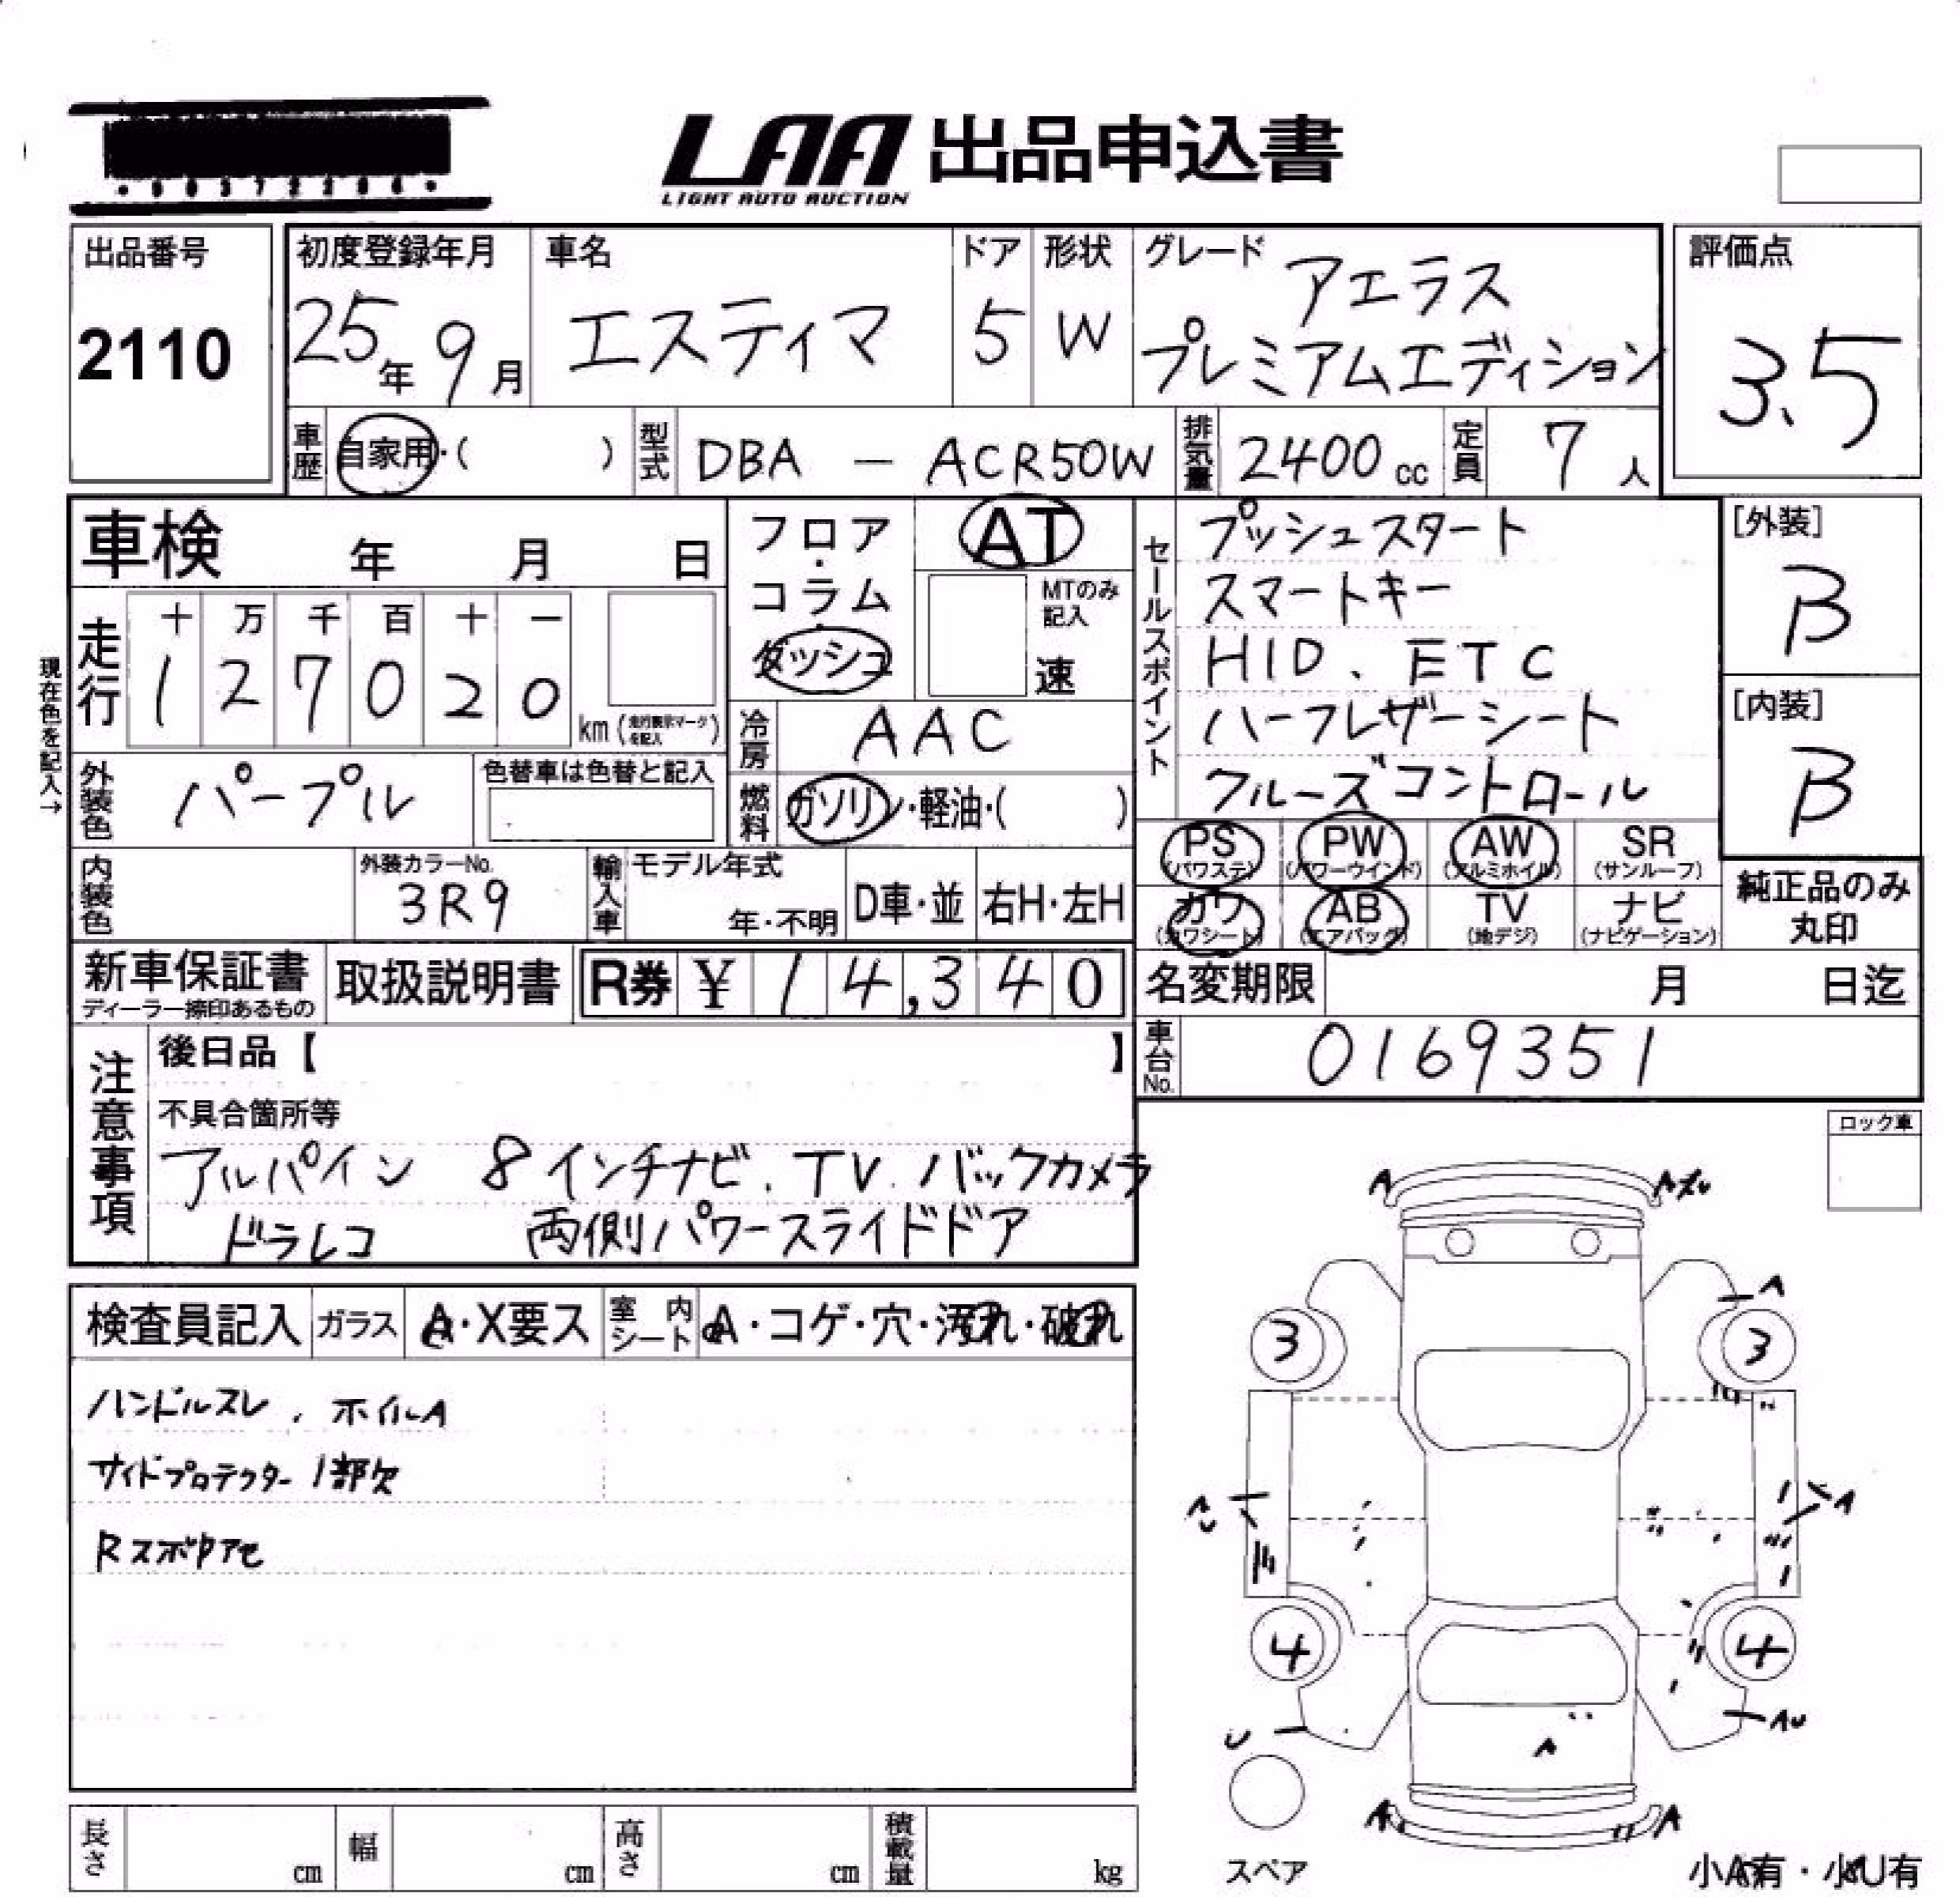 LAA 出品申込書
LIGHT AUTO AUCTION
出品番号
2110
初度登録年月
25年9月
車名
エスティマ
ドア
5
形状
W
グレード
アエラス
プレミアムエディション
評価点
3.5
車歴
自家用・( )
型式
DBA - ACR50W
排気量
2400cc
定員
7人
車検 年 月 日
フロア・コラム・ダッシュ
AT
MTのみ記入
速
セールスポイント
プッシュスタート
スマートキー
HID、ETC
ハーフレザーシート
クルーズコントロール
[外装]
B
[内装]
B
現在色を記入→
走行
十 万 千 百 十 一
1 2 7 0 2 0
km (走行表示マークを記入)
冷房
AAC
外装色
パープル
色替車は色替と記入
燃料
ガソリン・軽油・( )
PS (パワステ)
PW (パワーウインド)
AW (アルミホイル)
SR (サンルーフ)
カワ (カワシート)
AB (エアバッグ)
TV (地デジ)
ナビ (ナビゲーション)
純正品のみ
丸印
内装色
外装カラーNo.
3R9
輸入車
モデル年式
年・不明
D車・並
右H・左H
新車保証書
ディーラー捺印あるもの
取扱説明書
R券 ¥ 14,340
名変期限 月 日迄
車台No.
0169351
注意事項
後日品【 】
不具合箇所等
アルパイン 8インチナビ、TV、バックカメラ
ドラレコ 両側パワースライドドア
ロック車
検査員記入
ガラス
A・X要ス
室内シート
A・コゲ・穴・汚れ・破れ
ハンドルスレ、ホイルA
サイドプロテクター1部欠
A
A
A
3
3
A
4
4
U
AU
A
A
A
スペア
小A有・小U有
長さ cm
幅 cm
高さ cm
積載量 kg